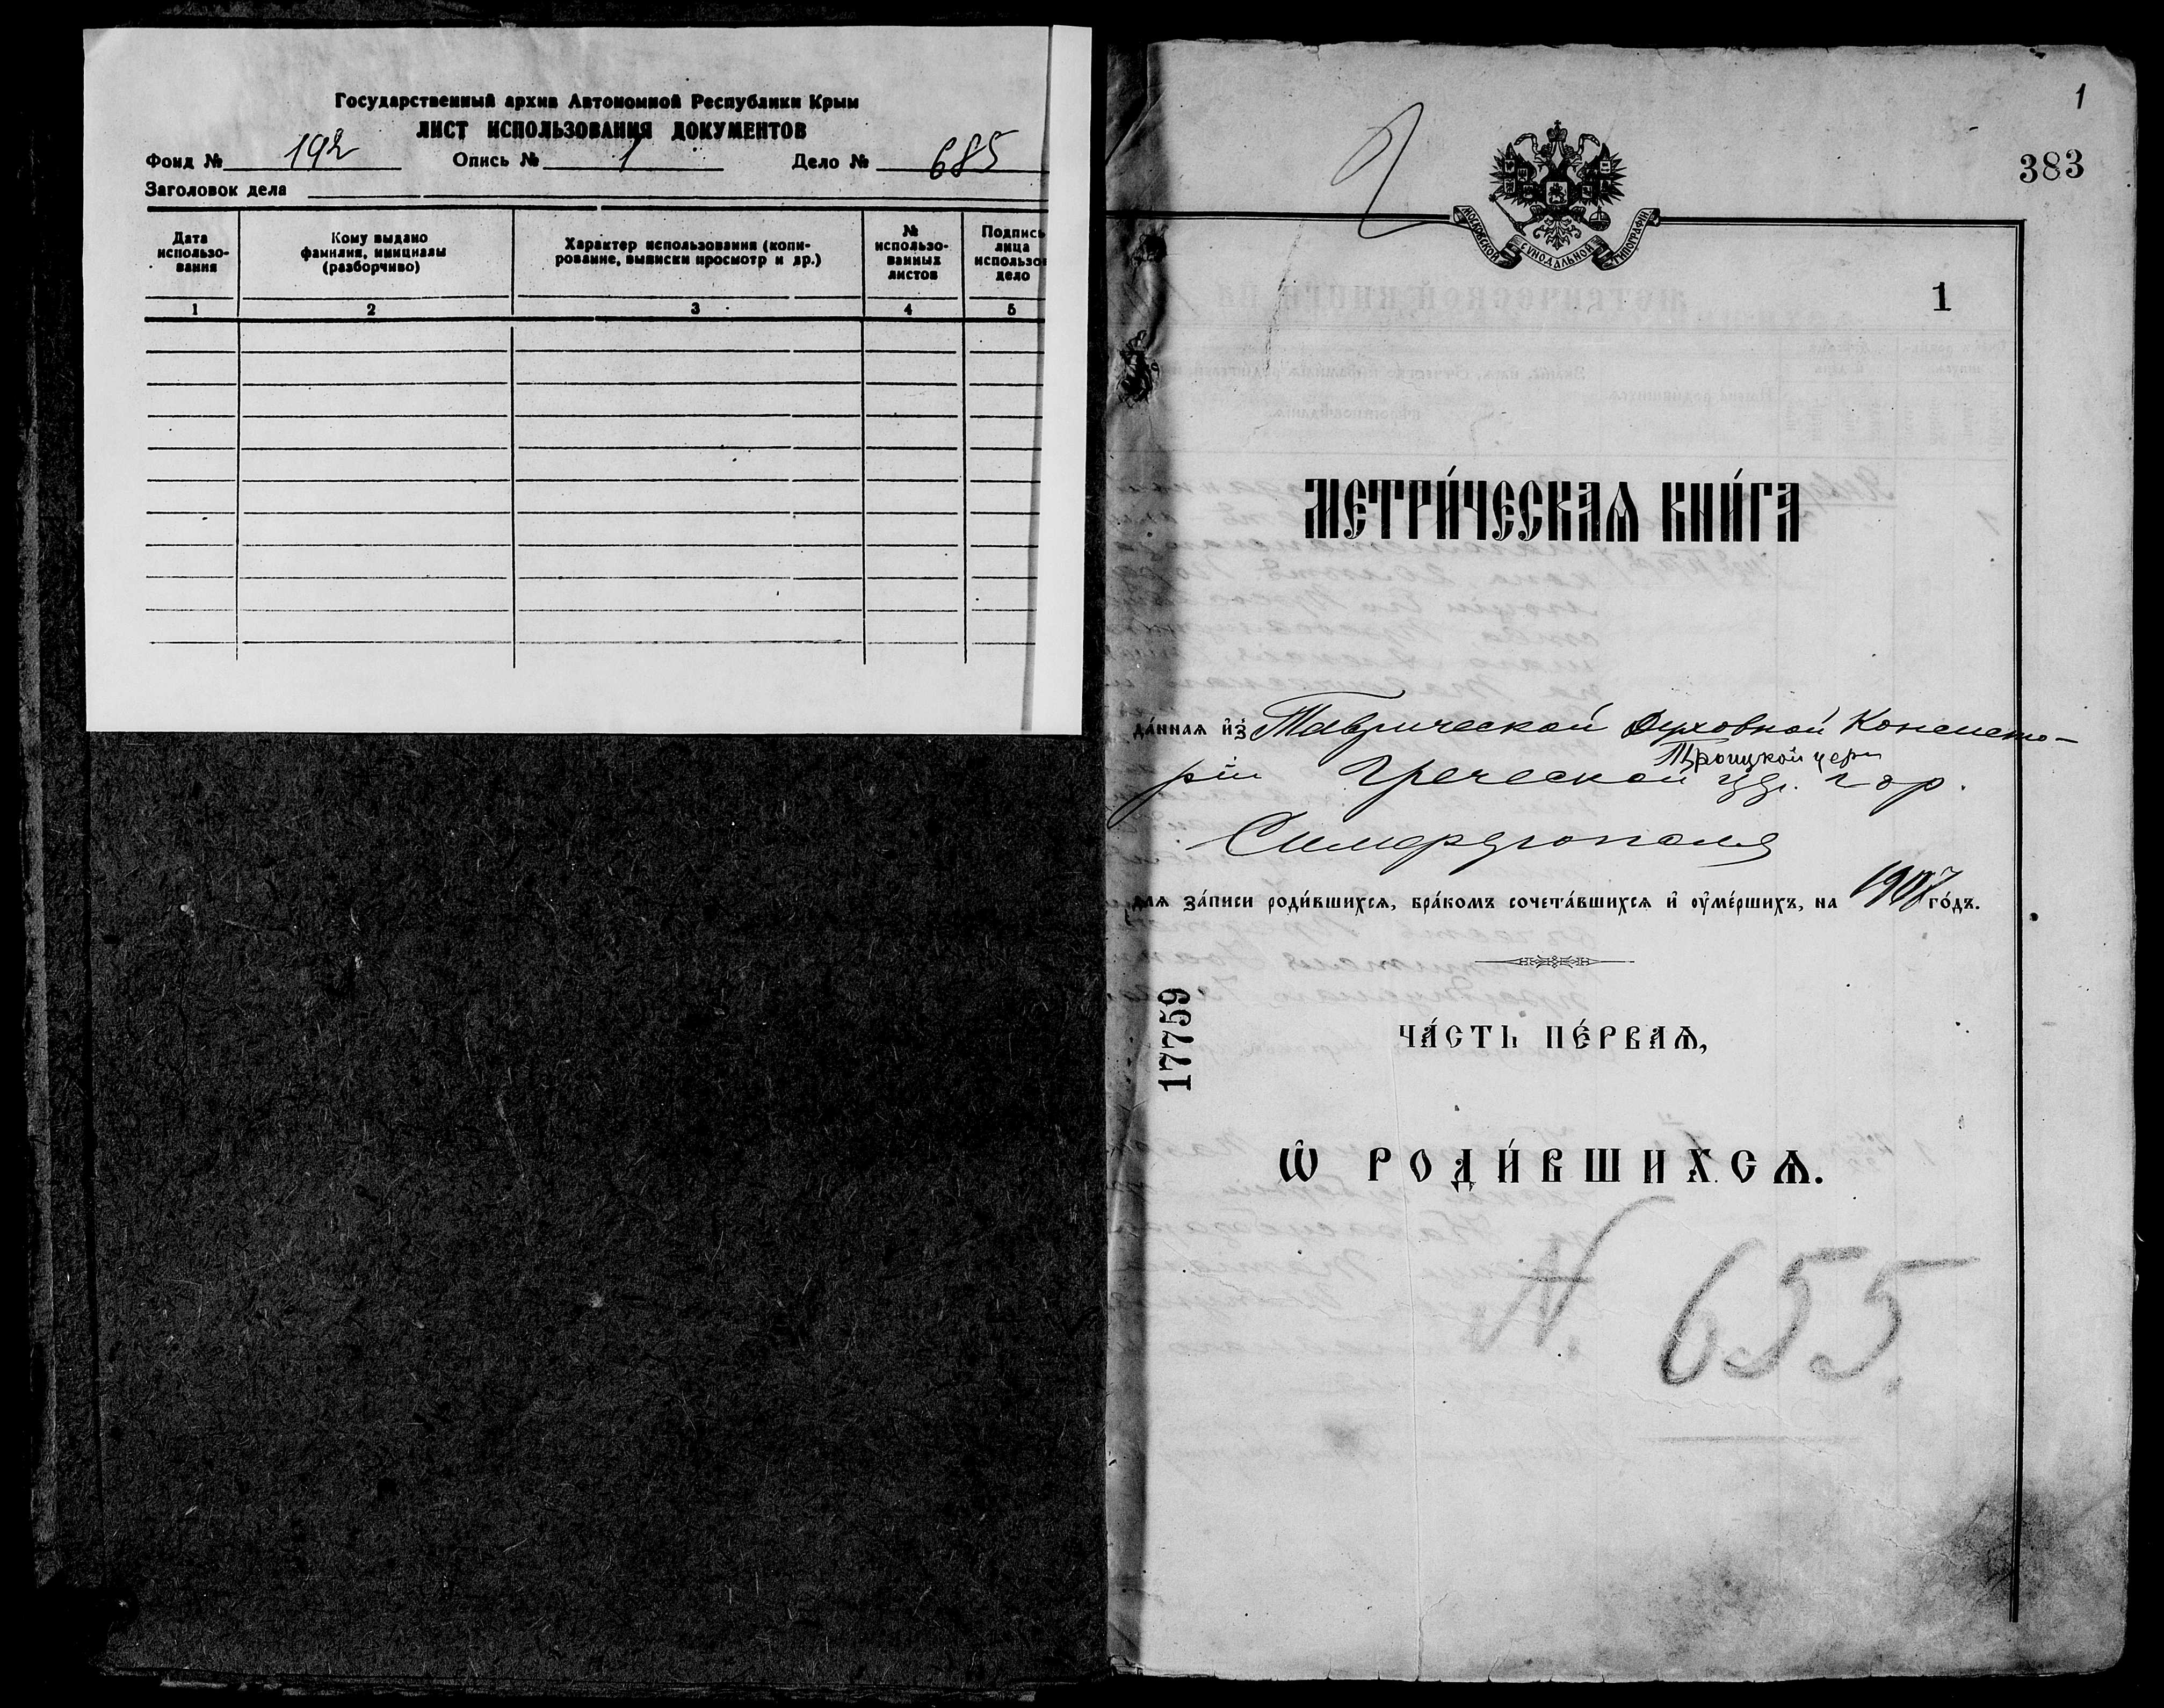 Государственный архив Автономной Республики Крым
ЛИСТ ИСПОЛЬЗОВАНИЯ ДОКУМЕНТОВ
Фонд № 192 Опись № 1 Дело № 685
Заголовок дела
Дата использо-вания
Кому выдано фамилия, инициалы (разборчиво)
Характер использования (копи-рование, выписки просмотр и др.)
№ использо-ванных листов
Подпись лица использо дело
1 2 3 4 5
1
383
МОСКОВСКОЙ СУНОДАЛЬНОЙ ТИПОГРАФІИ
1
МЕТРИ́ЧЕСКАѦ КНИ́ГА
да́ннаѧ и҆з̾ Таврической Духовной Консисто-
рiи Греческой Троицкой церк гор.
Симферополя
для за́писи роди́вшихсѧ, бра́комъ сочета́вшихсѧ и҆ ᲂу҆ме́ршихъ, на 1907 го́дъ.
17759
ЧА́СТЬ ПЕ́РВАѦ,
Ѽ РОДИ́ВШИХСѦ.
N. 655.